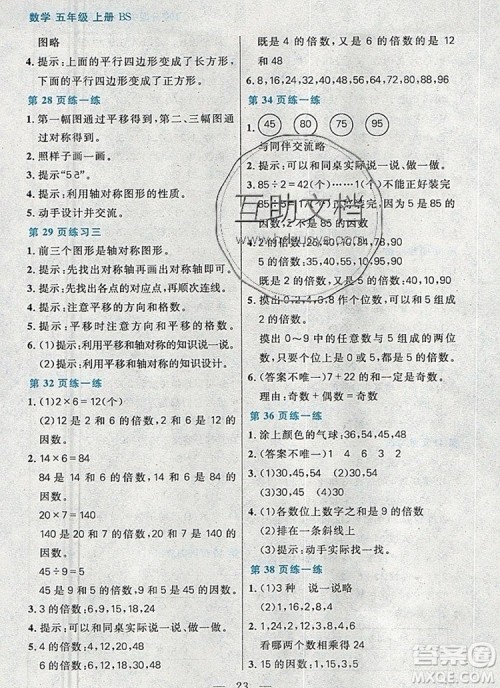 数学 五年级 上册 BS
图略
4.提示:下面的平行四边形变成了长方形,
下面的平行四边形变成了正方形。
第 28 页练一练
1.第一幅图通过平移得到,第二、三幅图通
过对称得到。
2.照样子画一画。
3.提示:“58”。
4.提示:利用轴对称图形的性质。
5.动手设计并交流。
第 29 页练习三
1.前三个图形是轴对称图形。
2.提示:先找出对称点再连线。
3.提示:先找出各点的对称点,再顺次连线。
4.提示:注意平移的方向和格数。
5.提示:平移时注意平移的方向和格数。
6.(1)提示:平移和轴对称的知识说一说。
(2)提示:利用平移和轴对称的知识设计。
第 32 页练一练
1.(1)2×6=12(个)
(2)12 是 2 和 6 的倍数,2 和 6 是 12 的
因数。
2.14×6=84
84 是 14 和 6 的倍数,14 和 6 是 84 的
因数。
20×7=140
140 是 20 和 7 的倍数,20 和 7 是 140 的
因数。
45÷9=5
45 是 9 和 5 的倍数,9 和 5 是 45 的因数。
3.3 的倍数:6,9,12,15,18
4.4 的倍数:16,24,36,48
6 的倍数:18,24,36,48,54
既是 4 的倍数,又是 6 的倍数:24,36,48
6.8,16,24,32,40,48,56,64,72,80,88,96
第 34 页练一练
1. 45 80 75 95
与同伴交流略
2.提示:可以和同桌实际说一说、做一做。
3.85÷2=42(个)……1(个)不能正好装完
85÷5=17(个) 能正好装完,因为 5 是 85
的因数,2 不是 85 的因数
4.2 的倍数:26,40,10,78,90
5 的倍数:35,40,10,95,90
既是 2 的倍数,又是 5 的倍数:40,10,90
5.摸出 0,2,4,6,8 作个位数,可以和 5 组成
2 的倍数
摸出 0~9 中的任意数与 5 组成的两位
数,例如:50,51,52,53……
6.(1)(答案不唯一)7+22 的和不是一个偶数
理由:奇数+偶数=奇数
第 36 页练一练
1.涂上颜色的气球:36,54,45,48
2.(答案不唯一)1 4 6 2 3 2
3.(1)30,45,54 (2)30,54
(3)30,45 (4)30
4.(1)各数位上数字之和是 9 的倍数
(2)排在一条斜线上
(3)提示:动手实际找一找。
第 38 页练一练
1.(1)3种 说一说略
(2)1,2,3,4,6,12
2.1,2,3,4,6,8,12,24
看哪两个数相乘得 24
3.15 的因数:1,3,5,15
23
互助文档
答案圈
MXQE.COM